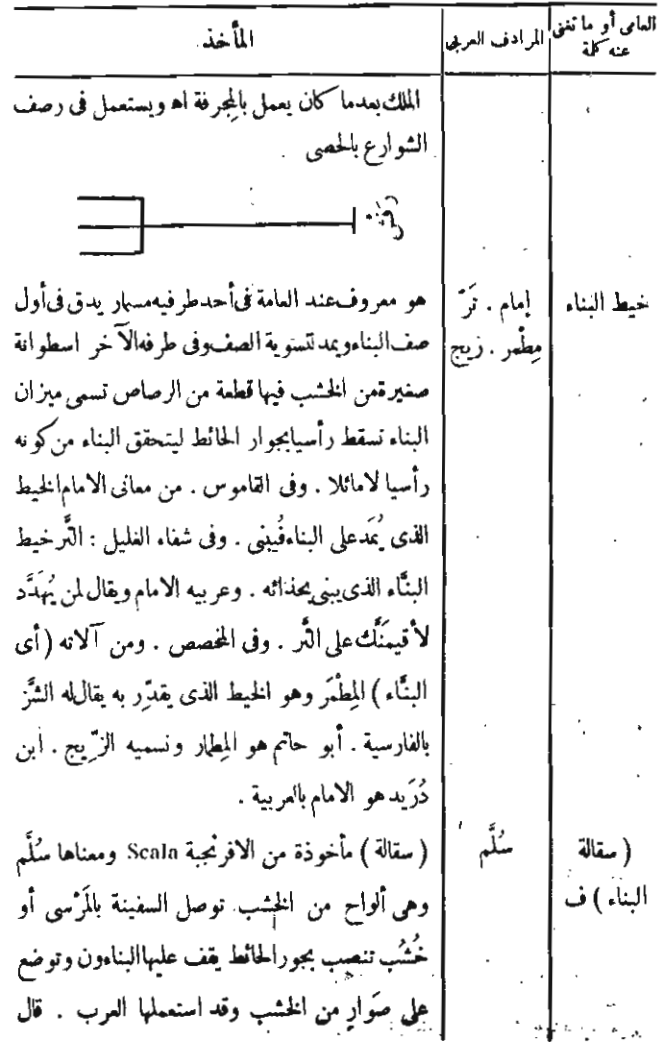 العامى أو ما تغنى عنه كلمة | المرادف العربى | المأخذ
الملك بعدما كان يعمل بالمِجرفة اه ويستعمل فى رصف
الشوارع بالحصى
خيط البناء | إمام . تَرّ | هو معروف عند العامة فى أحد طرفيه مسمار يدق فى أول
مِطْمر . زيج | صف البناء ويمد لتسوية الصف وفى طرفه الآخر اسطوانة
صغيرة من الخشب فيها قطعة من الرصاص تسمى ميزان
البناء تسقط رأسيا بجوار الحائط ليتحقق البناء من كونه
رأسيا لا مائلا . وفى القاموس . من معانى الامام الخيط
الذى يُمَد على البناء فُيبنى . وفى شفاء الغليل : التَّر خيط
البنَّاء الذى يبنى بحذائه . وعربيه الامام ويقال لمن يُهَدَّد
لأقيمَنَّك على التَّر . وفى المخصص . ومن آلاته ( أى
البنَّاء ) المِطْمَر وهو الخيط الذى يقدّر به يقال له الشَّز
بالفارسية . أبو حاتم هو المِطمار ونسميه الزِّيج . ابن
دُرَيد هو الامام بالعربية .
( سقالة | سُلَّم | ( سقالة ) مأخوذة من الافرنجية Scala ومعناها سُلَّم
البناء ) ف | وهى ألواح من الخشب توصل السفينة بالمَرْسى أو
خُشُب تنصب بجور الحائط يقف عليها البناءون وتوضع
على صَوارٍ من الخشب وقد استعملها العرب . قال